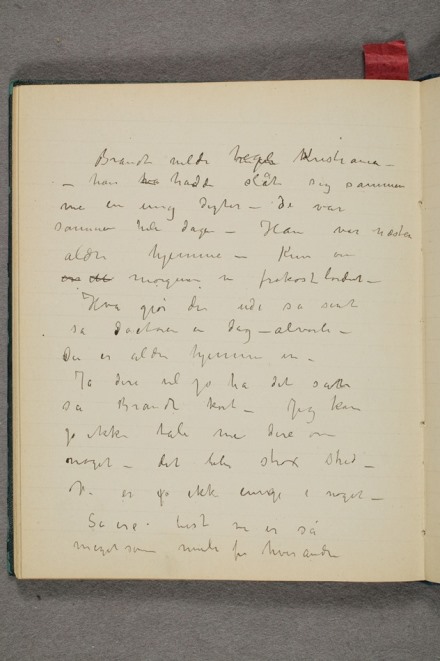 Brandt vilde Kristiania –
– han hadde slåt sig sammen
me en ung digter – de var
sammen hele dagen – Han var næsten
aldri hjemme – Kun om
morgenen ve frokost bordet –
Hva gjør du ude så sent
sa doctoren en dag – alvorli –
Du er aldri hjemme en –
Ja dere vil jo ha det sån
sa Brandt kort – Jeg kan
jo ikke tale me dere om
noget – det blir strax stri –
Vi er jo ikke enige i noget –
So ere best vi er så
meget som muli for hverandre